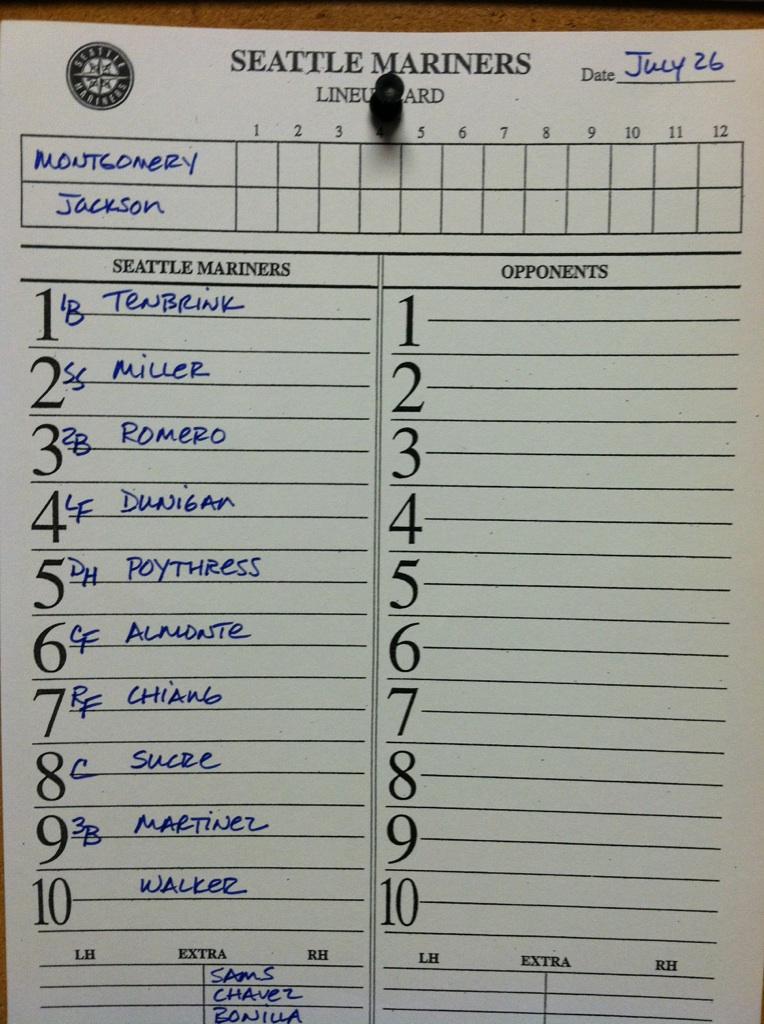 SEATTLE MARINERS
SEATTLE MARINERS
LINEU ARD
Date July 26
1 2 3 4 5 6 7 8 9 10 11 12
MONTGOMERY
Jackson
SEATTLE MARINERS
OPPONENTS
1 1B TENBRINK
2 SS MILLER
3 2B ROMERO
4 LF DUNIGAN
5 DH POYTHRESS
6 CF ALMONTE
7 RF CHIANG
8 C SUCRE
9 3B MARTINEZ
10 WALKER
1
2
3
4
5
6
7
8
9
10
LH EXTRA RH
SAMS
CHAVEZ
BONILLA
LH EXTRA RH